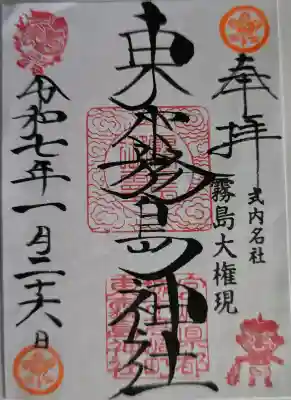 奉拝
式内名社
霧島大権現
東霧島神社
令和七年一月二十六日